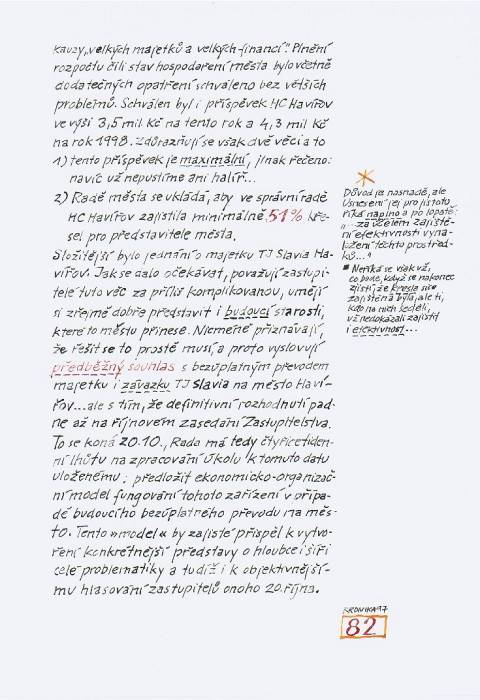 kauzy „velkých majetků a velkých financí". Plnění
rozpočtu čili stav hospodaření města bylo včetně
dodatečných opatření schváleno bez větších
problémů. Schválen byl i příspěvek HC Havířov
ve výši 3,5 mil Kč na tento rok a 4,3 mil Kč
na rok 1998. Zdůrazňují se však dvě věci a to
1) tento příspěvek je maximální, jinak řečeno:
navíc už nepustíme ani halíř...
2) Radě města se ukládá, aby ve správní radě
HC Havířov zajistila minimálně 51% kře-
sel pro představitele města.
Složitější bylo jednání o majetku TJ Slavia Ha-
vířov. Jak se dalo očekávat, považují zastupi-
telé tuto věc za příliš komplikovanou, umějí
si zřejmě dobře představit i budoucí starosti,
které to městu přinese. Niemeně přiznávají,
že řešit se to prostě musí, a proto vyslovují
předběžný souhlas s bezúplatným převodem
majetku i závazku TJ Slavia na město Haví-
řov...ale s tím, že definitivní rozhodnutí pad-
ne až na říjnovém zasedání Zastupitelstva.
To se koná 20.10., Rada má tedy čtyřicetiden-
ní lhůtu na zpracování úkolu k tomuto datu
uloženému: předložit ekonomicko-organizač-
ní model fungování tohoto zařízení v přípa-
dě budoucího bezúplatného převodu na měs-
to. Tento »model« by zajisté přispěl k vytvo-
ření konkrétnější představy o hloubce i šíři
celé problematiky a tudíž i k objektivnější-
mu hlasování zastupitelů onoho 20. října.
Důvod je nasnadě, ale
Usnesení jej pro jistotu
říká naplno a po lopatě:
„...za účelem zajiště-
ní efektivnosti vyna-
ložení těchto prostřed-
ků..."
Neříká se však už,
co bude, když se nakonec
zjistí, že křesla sice
zajištěna byla, ale ti,
kdo na nich seděli,
už nedokázali zajistit
i efektivnost...
KRONIKA 97
82